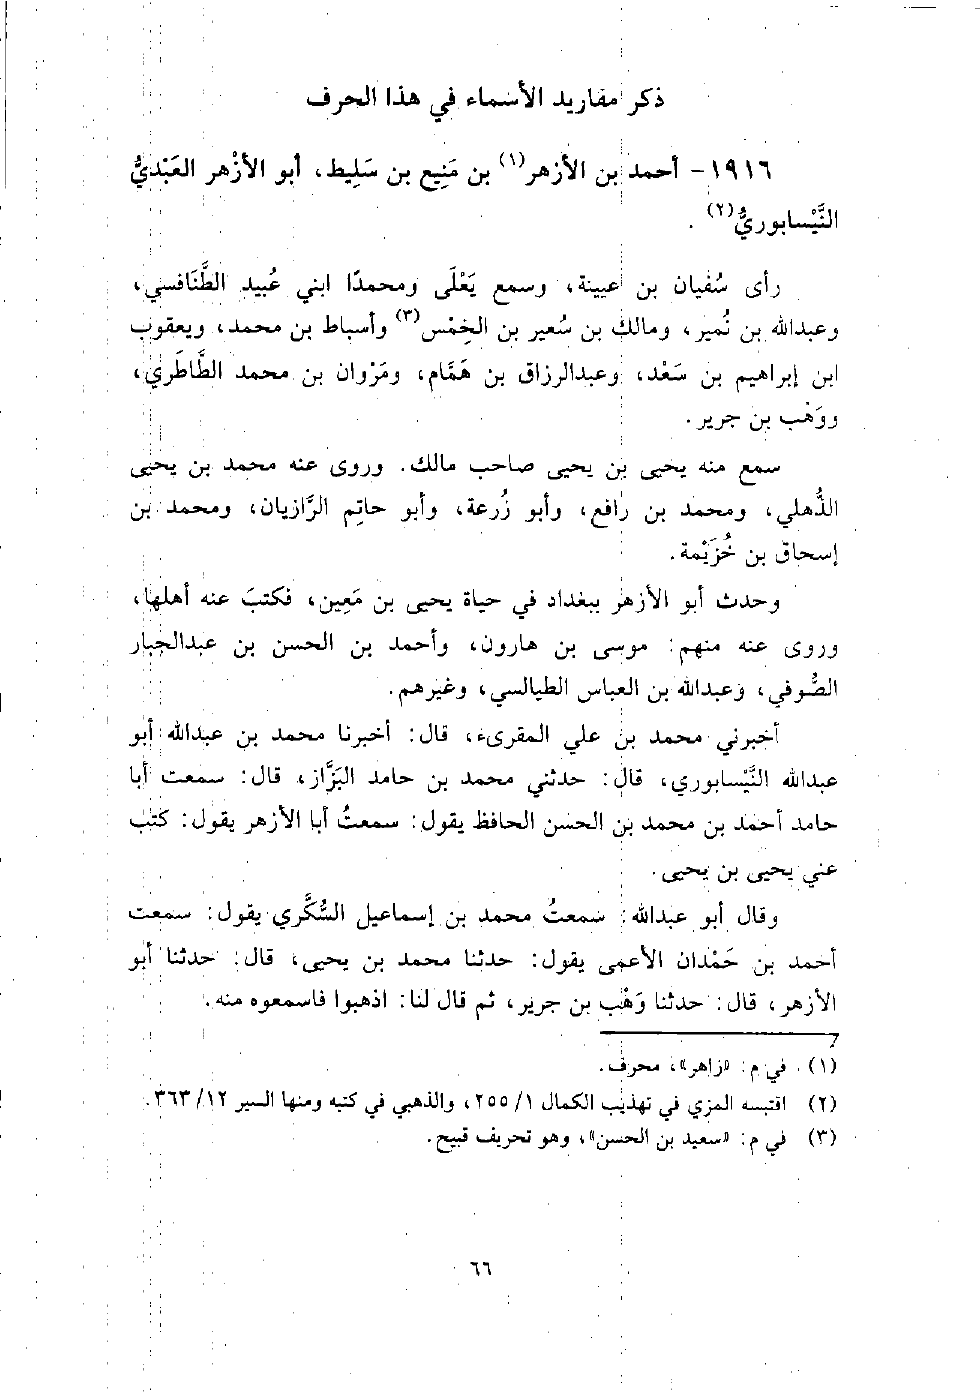 ذكر مفاريد الأسماء في هذا الحرف
١٩١٦- أحمد بن الأزهر(١) بن مَنِيع بن سَلِيط، أبو الأزْهر العَبْديُّ
النَّيْسابوريُّ(٢).
رأى سُفيان بن عيينة، وسمع يَعْلَى ومحمدًا ابني عُبيد الطَّنَافسي،
وعبدالله بن نُمير، ومالك بن سُعير بن الخِمْس(٣) وأسباط بن محمد، ويعقوب
ابن إبراهيم بن سَعْد، وعبدالرزاق بن هَمَّام، ومَرْوان بن محمد الطَّاطَري،
ووَهْب بن جرير.
سمع منه يحيى بن يحيى صاحب مالك. وروى عنه محمد بن يحيى
الذُّهلي، ومحمد بن رافع، وأبو زُرعة، وأبو حاتِم الرَّازيان، ومحمد بن
إسحاق بن خُزَيْمة.
وحدث أبو الأزهر ببغداد في حياة يحيى بن مَعِين، فكتبَ عنه أهلها،
وروى عنه منهم: موسى بن هارون، وأحمد بن الحسن بن عبدالجبار
الصُّوفي، وعبدالله بن العباس الطيالسي، وغيرهم.
أخبرني محمد بن علي المقرىء، قال: أخبرنا محمد بن عبدالله أبو
عبدالله النَّيْسابوري، قال: حدثني محمد بن حامد البَزَّاز، قال: سمعت أبا
حامد أحمد بن محمد بن الحسن الحافظ يقول: سمعتُ أبا الأزهر يقول: كتب
عني يحيى بن يحيى.
وقال أبو عبدالله: سمعتُ محمد بن إسماعيل السُّكَّري يقول: سمعت
أحمد بن حَمْدان الأعمى يقول: حدثنا محمد بن يحيى، قال: حدثنا أبو
الأزهر، قال: حدثنا وَهْب بن جرير، ثم قال لنا: اذهبوا فاسمعوه منه.
(١) في م: «زاهر»، محرف.
(٢) اقتبسه المزي في تهذيب الكمال ١/ ٢٥٥، والذهبي في كتبه ومنها السير ١٢/ ٣٦٣.
(٣) في م: «سعيد بن الحسن»، وهو تحريف قبيح.
٦٦